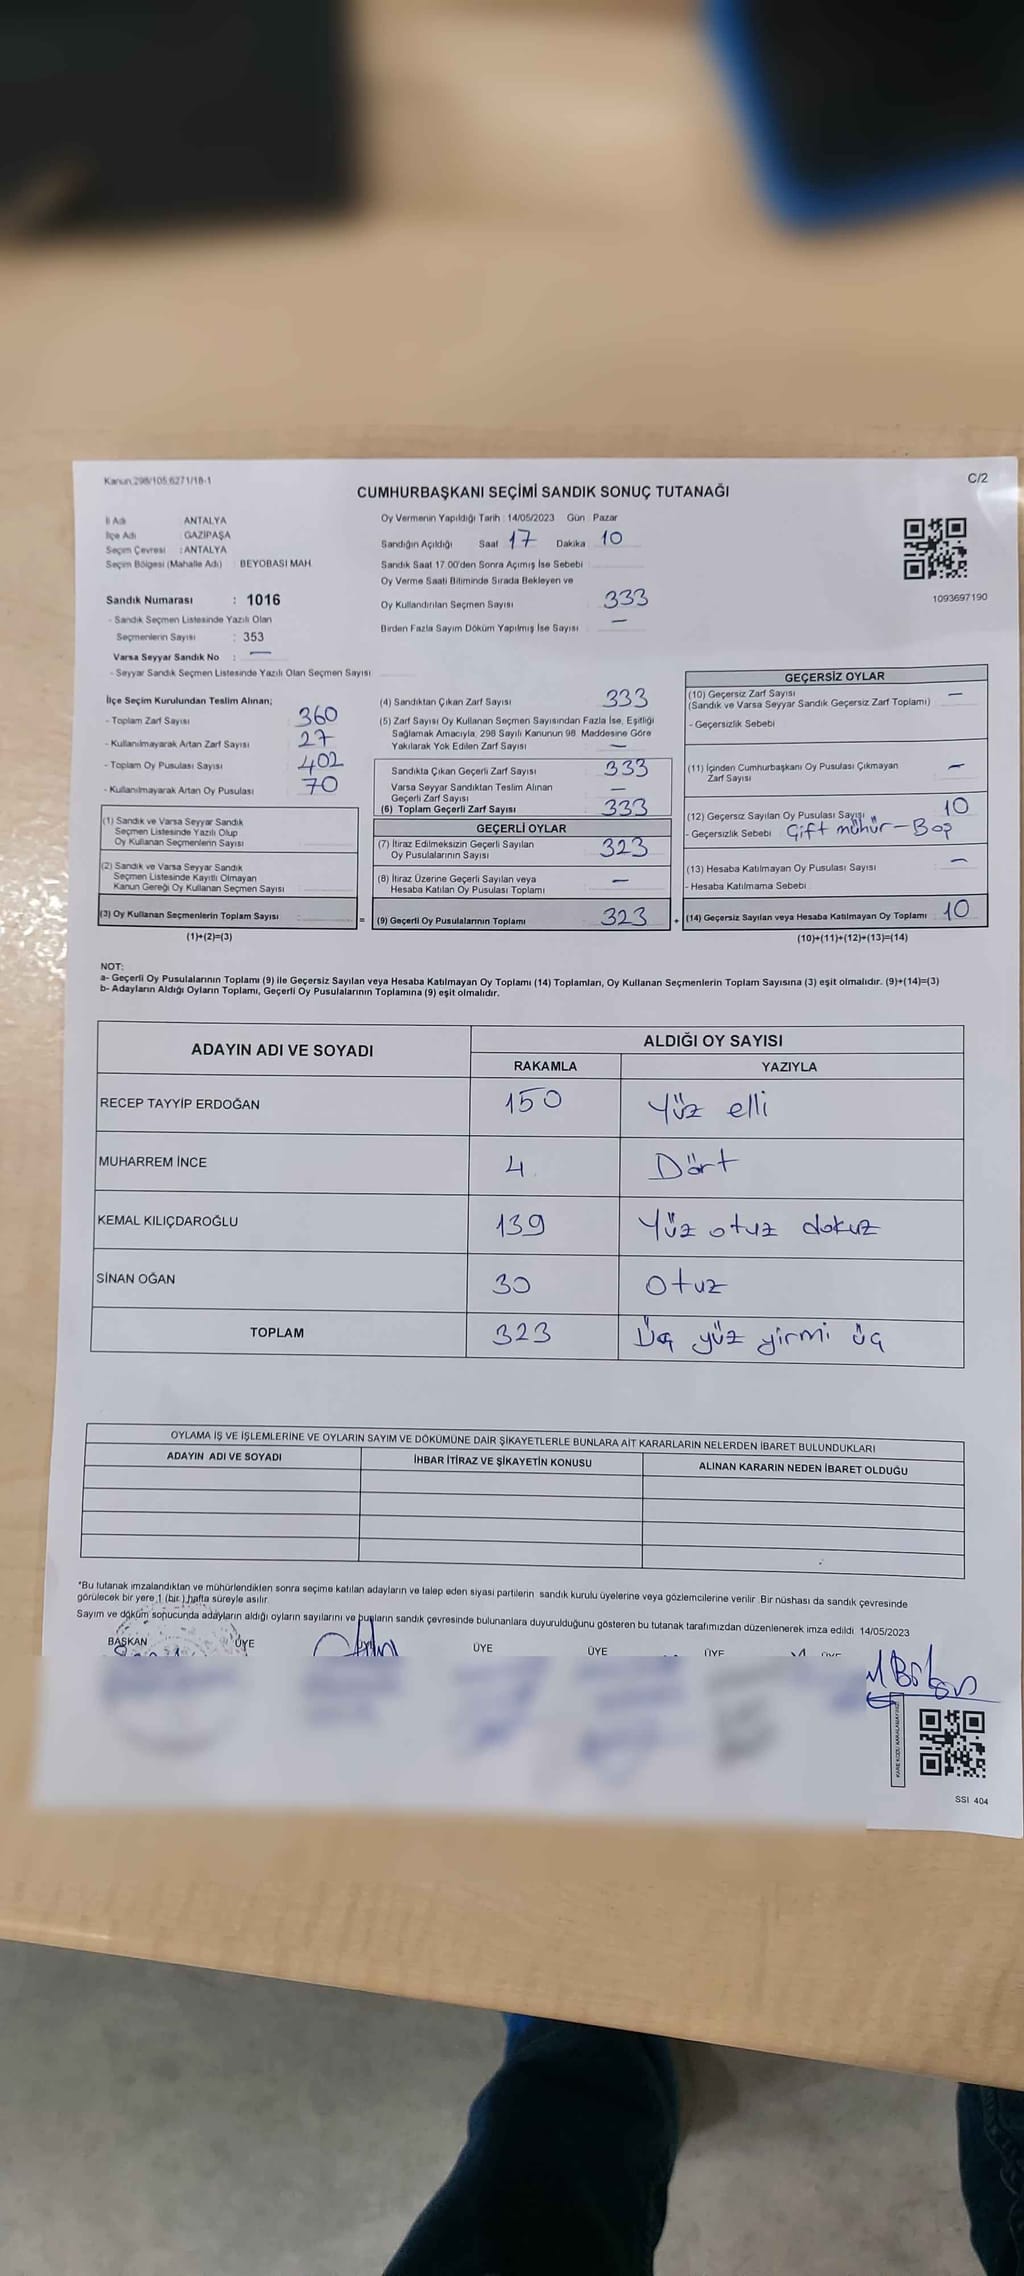 Kanun.298/105.6271/18-1
C/2
CUMHURBAŞKANI SEÇİMİ SANDIK SONUÇ TUTANAĞI
İl Adı ANTALYA
İlçe Adı : GAZİPAŞA
Seçim Çevresi : ANTALYA
Seçim Bölgesi (Mahalle Adı) : BEYOBASI MAH
Sandık Numarası : 1016
- Sandık Seçmen Listesinde Yazılı Olan
Seçmenlerin Sayısı : 353
Varsa Seyyar Sandık No : —
- Seyyar Sandık Seçmen Listesinde Yazılı Olan Seçmen Sayısı
Oy Vermenin Yapıldığı Tarih : 14/05/2023 Gün : Pazar
Sandığın Açıldığı Saat 17 Dakika 10
Sandık Saat 17.00'den Sonra Açımış İse Sebebi
Oy Verme Saati Bitiminde Sırada Bekleyen ve
Oy Kullandırılan Seçmen Sayısı 333
Birden Fazla Sayım Döküm Yapılmış İse Sayısı —
1093697190
İlçe Seçim Kurulundan Teslim Alınan;
- Toplam Zarf Sayısı 360
- Kullanılmayarak Artan Zarf Sayısı 27
- Toplam Oy Pusulası Sayısı 402
- Kullanılmayarak Artan Oy Pusulası 70
(1) Sandık ve Varsa Seyyar Sandık
Seçmen Listesinde Yazılı Olup
Oy Kullanan Seçmenlerin Sayısı
(2) Sandık ve Varsa Seyyar Sandık
Seçmen Listesinde Kayıtlı Olmayan
Kanun Gereği Oy Kullanan Seçmen Sayısı
(3) Oy Kullanan Seçmenlerin Toplam Sayısı =
(1)+(2)=(3)
(4) Sandıktan Çıkan Zarf Sayısı 333
(5) Zarf Sayısı Oy Kullanan Seçmen Sayısından Fazla İse, Eşitliği
Sağlamak Amacıyla, 298 Sayılı Kanunun 98. Maddesine Göre
Yakılarak Yok Edilen Zarf Sayısı —
Sandıkta Çıkan Geçerli Zarf Sayısı 333
Varsa Seyyar Sandıktan Teslim Alınan
Geçerli Zarf Sayısı —
(6) Toplam Geçerli Zarf Sayısı 333
GEÇERLİ OYLAR
(7) İtiraz Edilmeksizin Geçerli Sayılan
Oy Pusulalarının Sayısı 323
(8) İtiraz Üzerine Geçerli Sayılan veya
Hesaba Katılan Oy Pusulası Toplamı —
(9) Geçerli Oy Pusulalarının Toplamı 323 +
GEÇERSİZ OYLAR
(10) Geçersiz Zarf Sayısı —
(Sandık ve Varsa Seyyar Sandık Geçersiz Zarf Toplamı)
- Geçersizlik Sebebi
(11) İçinden Cumhurbaşkanı Oy Pusulası Çıkmayan
Zarf Sayısı —
(12) Geçersiz Sayılan Oy Pusulası Sayısı 10
- Geçersizlik Sebebi Çift mühür - Boş
(13) Hesaba Katılmayan Oy Pusulası Sayısı —
- Hesaba Katılmama Sebebi
(14) Geçersiz Sayılan veya Hesaba Katılmayan Oy Toplamı 10
(10)+(11)+(12)+(13)=(14)
NOT:
a- Geçerli Oy Pusulalarının Toplamı (9) ile Geçersiz Sayılan veya Hesaba Katılmayan Oy Toplamı (14) Toplamları, Oy Kullanan Seçmenlerin Toplam Sayısına (3) eşit olmalıdır. (9)+(14)=(3)
b- Adayların Aldığı Oyların Toplamı, Geçerli Oy Pusulalarının Toplamına (9) eşit olmalıdır.
ADAYIN ADI VE SOYADI ALDIĞI OY SAYISI
RAKAMLA YAZIYLA
RECEP TAYYİP ERDOĞAN 150 Yüz elli
MUHARREM İNCE 4 Dört
KEMAL KILIÇDAROĞLU 139 Yüz otuz dokuz
SİNAN OĞAN 30 Otuz
TOPLAM 323 Üç yüz yirmi üç
OYLAMA İŞ VE İŞLEMLERİNE VE OYLARIN SAYIM VE DÖKÜMÜNE DAİR ŞİKAYETLERLE BUNLARA AİT KARARLARIN NELERDEN İBARET BULUNDUKLARI
ADAYIN ADI VE SOYADI İHBAR İTİRAZ VE ŞİKAYETİN KONUSU ALINAN KARARIN NEDEN İBARET OLDUĞU
*Bu tutanak imzalandıktan ve mühürlendikten sonra seçime katılan adayların ve talep eden siyasi partilerin sandık kurulu üyelerine veya gözlemcilerine verilir. Bir nüshası da sandık çevresinde
görülecek bir yere 1 (bir) hafta süreyle asılır.
Sayım ve döküm sonucunda adayların aldığı oyların sayılarını ve bunların sandık çevresinde bulunanlara duyurulduğunu gösteren bu tutanak tarafımızdan düzenlenerek imza edildi 14/05/2023
BAŞKAN ÜYE ÜYE ÜYE ÜYE ÜYE
SSI 404